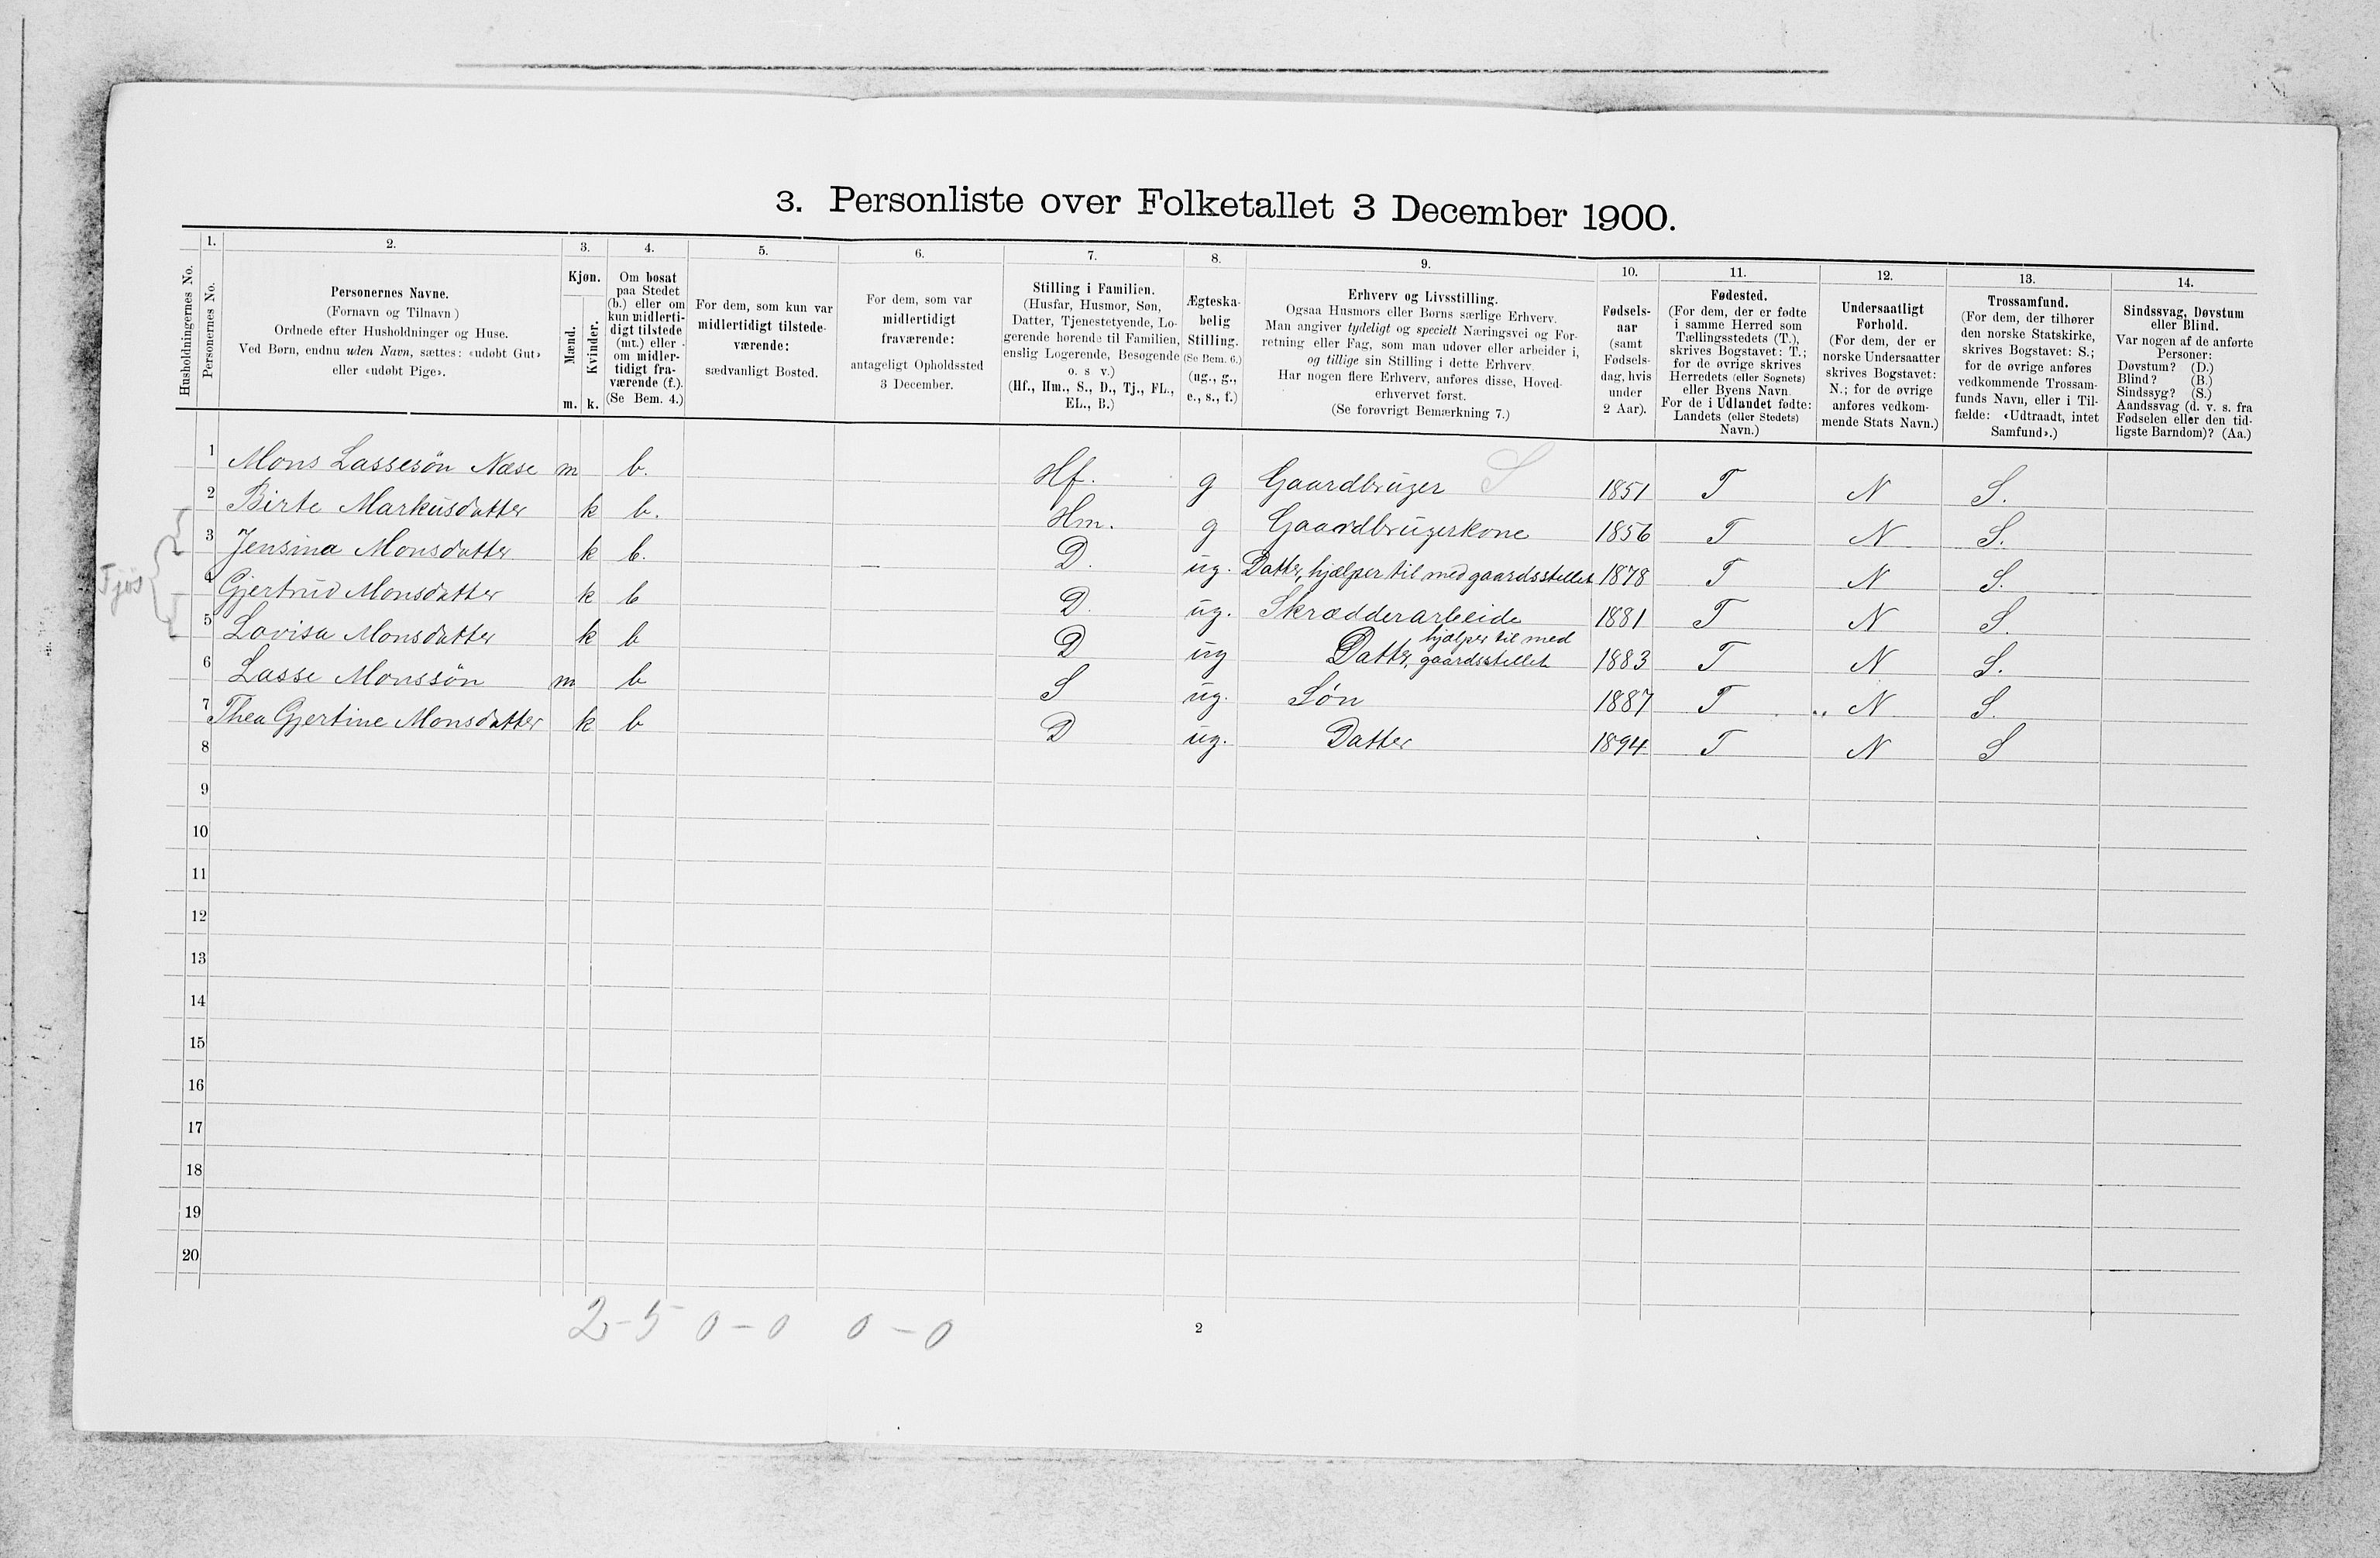 3. Personliste over Folketallet 3 December 1900.
1. 2. 3. 4. 5. 6. 7. 8. 9. 10. 11. 12. 13. 14.
Husholdningernes No.
Personernes No.
Personernes Navne.
(Fornavn og Tilnavn)
Ordnede efter Husholdninger og Huse.
Ved Børn, endnu uden Navn, sættes: «udøbt Gut»
eller «udøbt Pige».
Kjøn.
Mænd.
Kvinder.
m. k.
Om bosat
paa Stedet
(b.) eller om
kun midlerti-
digt tilstede
(mt.) eller
om midler-
tidigt fra-
værende (f.).
(Se Bem. 4.)
For dem, som kun var
midlertidigt tilstede-
værende:
sædvanligt Bosted.
For dem, som var
midlertidigt
fraværende:
antageligt Opholdssted
3 December.
Stilling i Familien.
(Husfar, Husmor, Søn,
Datter, Tjenestetyende, Lo-
gerende hørende til Familien,
enslig Logerende, Besøgende
o. s. v.)
(Hf., Hm., S., D., Tj., FL.,
EL., B.)
Ægteska-
belig
Stilling.
(Se Bem. 6.)
(ug., g.,
e., s., f.)
Erhverv og Livsstilling.
Ogsaa Husmors eller Børns særlige Erhverv.
Man angiver tydeligt og specielt Næringsvei og For-
retning eller Fag, som man udøver eller arbeider i,
og tillige sin Stilling i dette Erhverv.
Har nogen flere Erhverv, anføres disse, Hoved-
erhvervet først.
(Se forøvrigt Bemærkning 7.)
Fødsels-
aar
(samt
Fødsels-
dag, hvis
under
2 Aar).
Fødested.
(For dem, der er fødte
i samme Herred som
Tællingsstedets (T.),
skrives Bogstavet: T.;
for de øvrige skrives
Herredets (eller Sognets)
eller Byens Navn.
For de i Udlandet fødte:
Landets (eller Stedets)
Navn.)
Undersaatligt
Forhold.
(For dem, der er
norske Undersaatter
skrives Bogstavet:
N.; for de øvrige
anføres vedkom-
mende Stats Navn.)
Trossamfund.
(For dem, der tilhører
den norske Statskirke,
skrives Bogstavet: S.;
for de øvrige anføres
vedkommende Trossam-
funds Navn, eller i Til-
fælde: «Udtraadt, intet
Samfund».)
Sindssvag, Døvstum
eller Blind.
Var nogen af de anførte
Personer:
Døvstum? (D.)
Blind? (B.)
Sindssyg? (S.)
Aandssvag (d. v. s. fra
Fødselen eller den tid-
ligste Barndom)? (Aa.)
1 Mons Lassesön Næse m b. Hf. g Gaardbruger S 1851 T N S.
2 Birte Markusdatter k b. Hm. g Gaardbrugerkone 1856 T N S.
3 Jensina Monsdatter k b. D. ug. Datter, hjælper til med gaardsstellet 1878 T N S.
Fjøs
4 Gjertrud Monsdatter k b D. ug. Skrædderarbeide 1881 T N S.
5 Lovisa Monsdatter k b D ug Datter, hjælper til med gaardsstellet 1883 T N S.
6 Lasse Monssön m b S ug. Søn 1887 T N S.
7 Thea Gjertine Monsdatter k b D ug. Datter 1894 T N S
8
9
10
11
12
13
14
15
16
17
18
19
20
2-5 0-0 0-0
2